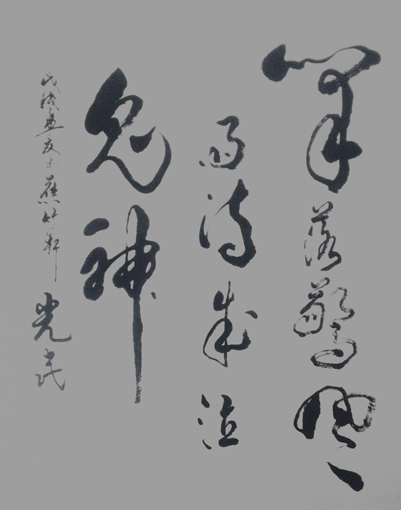 筆落驚風
雨詩成泣
鬼神
戊戌孟夏於蕉竹軒 光